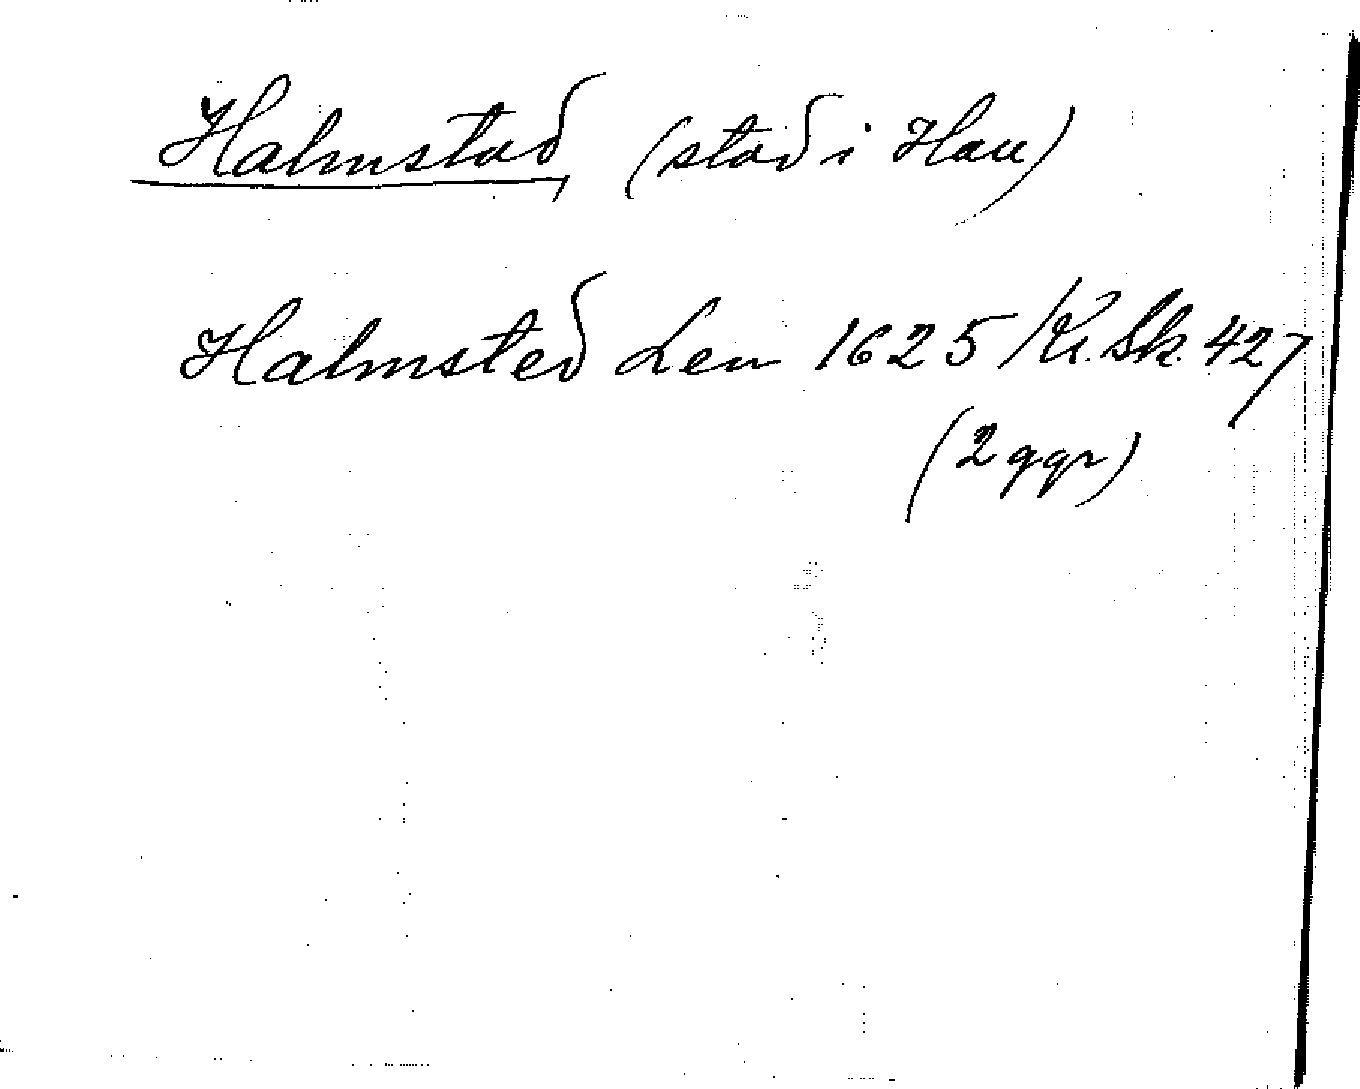 Halmstad, (stad i Hall)
Halmsted Len 1625 /Kr. Sk. 427
(2 ggr)